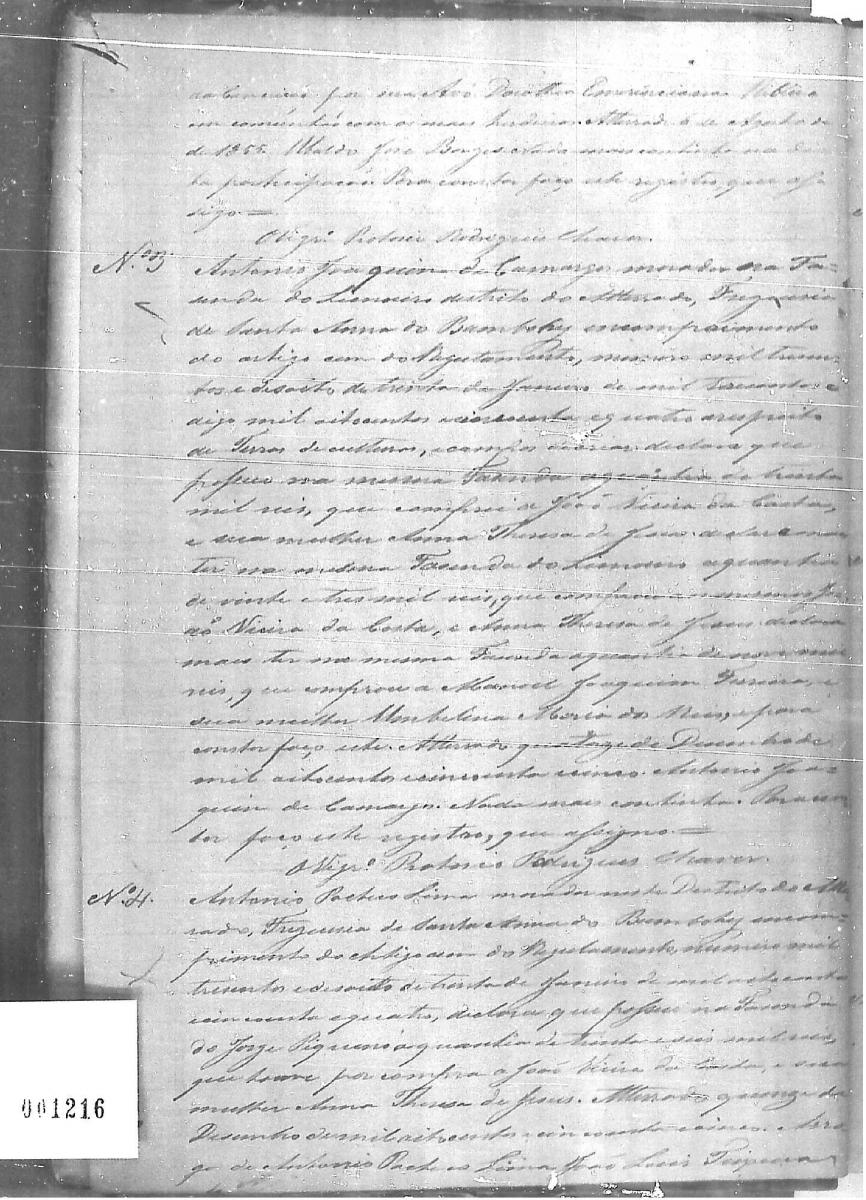 da Conceição por sua Avó Dorothea Emerenciana Ribeiro
em commũ com os mais herdeiros. Atterrado 6 de Agosto de
de 1855. Ubaldo José Borges. Nada mais continha na di
ta participação. Para constar faço este registro, que as
signo =
O Vigrº
Nº 3
Antonio Joaquim de Camargo morador na Fa-
senda do Limoeiro destrito do Atterrado, Freguesia
de Santa Anna do Bambohy em comprimento
do artigo cem do Regulamento, numero mil tresen-
tos e desoito de trinta de Janeiro de mil
digo mil oitocentos e cincoenta e quatro a respeito
de Terras de culturas, e campos de criar declara que
possue na mesma Fasenda a quantia de trinta
mil reis, que comprei a João Vieira da Costa,
e sua mulher Anna Theresa de Jesus declara mais
ter na mesma Fasenda do Limoeiro a quantia
de vinte e tres mil reis, que comprou a mesmos Jo
ão Vieira da Costa, e Anna Theresa de Jesus declara
mais ter na mesma Fasenda a quantia de nove mil
reis, que comprou a Manoel Joaquim Ferreira, e
sua mulher Umbelina Maria dos Reis, e para
constar faço este. Atterrado quatorze de Desembro de
mil oitocentos e cincoenta e cinco. Antonio Joa-
quim de Camargo. Nada mais continha. Para cons
tar faço este registro, que assigno =
O Vigrº Rodrigues Chaves.
Nº 4.
Antonio Pacheco Lima morador neste Destrito do Atter
rado, Freguesia de Santa Anna do Bambohy em com-
primento do Artigo cem do Regulamento, numero mil
tresentos e desoito de trinta de Janeiro de mil oitocentos
e cincoenta e quatro, declara que possue na Fasenda
do Jorge Piqueno a quantia de trinta e seis mil reis,
que houve por compra a João Vieira da Costa, e sua
mulher Anna Theresa de Jesus. Atterrado quinze de
Desembro de mil oitocentos e cincoenta e cinco. A ro
go de Antonio Pacheco Lima João Luis Teixeira
001216